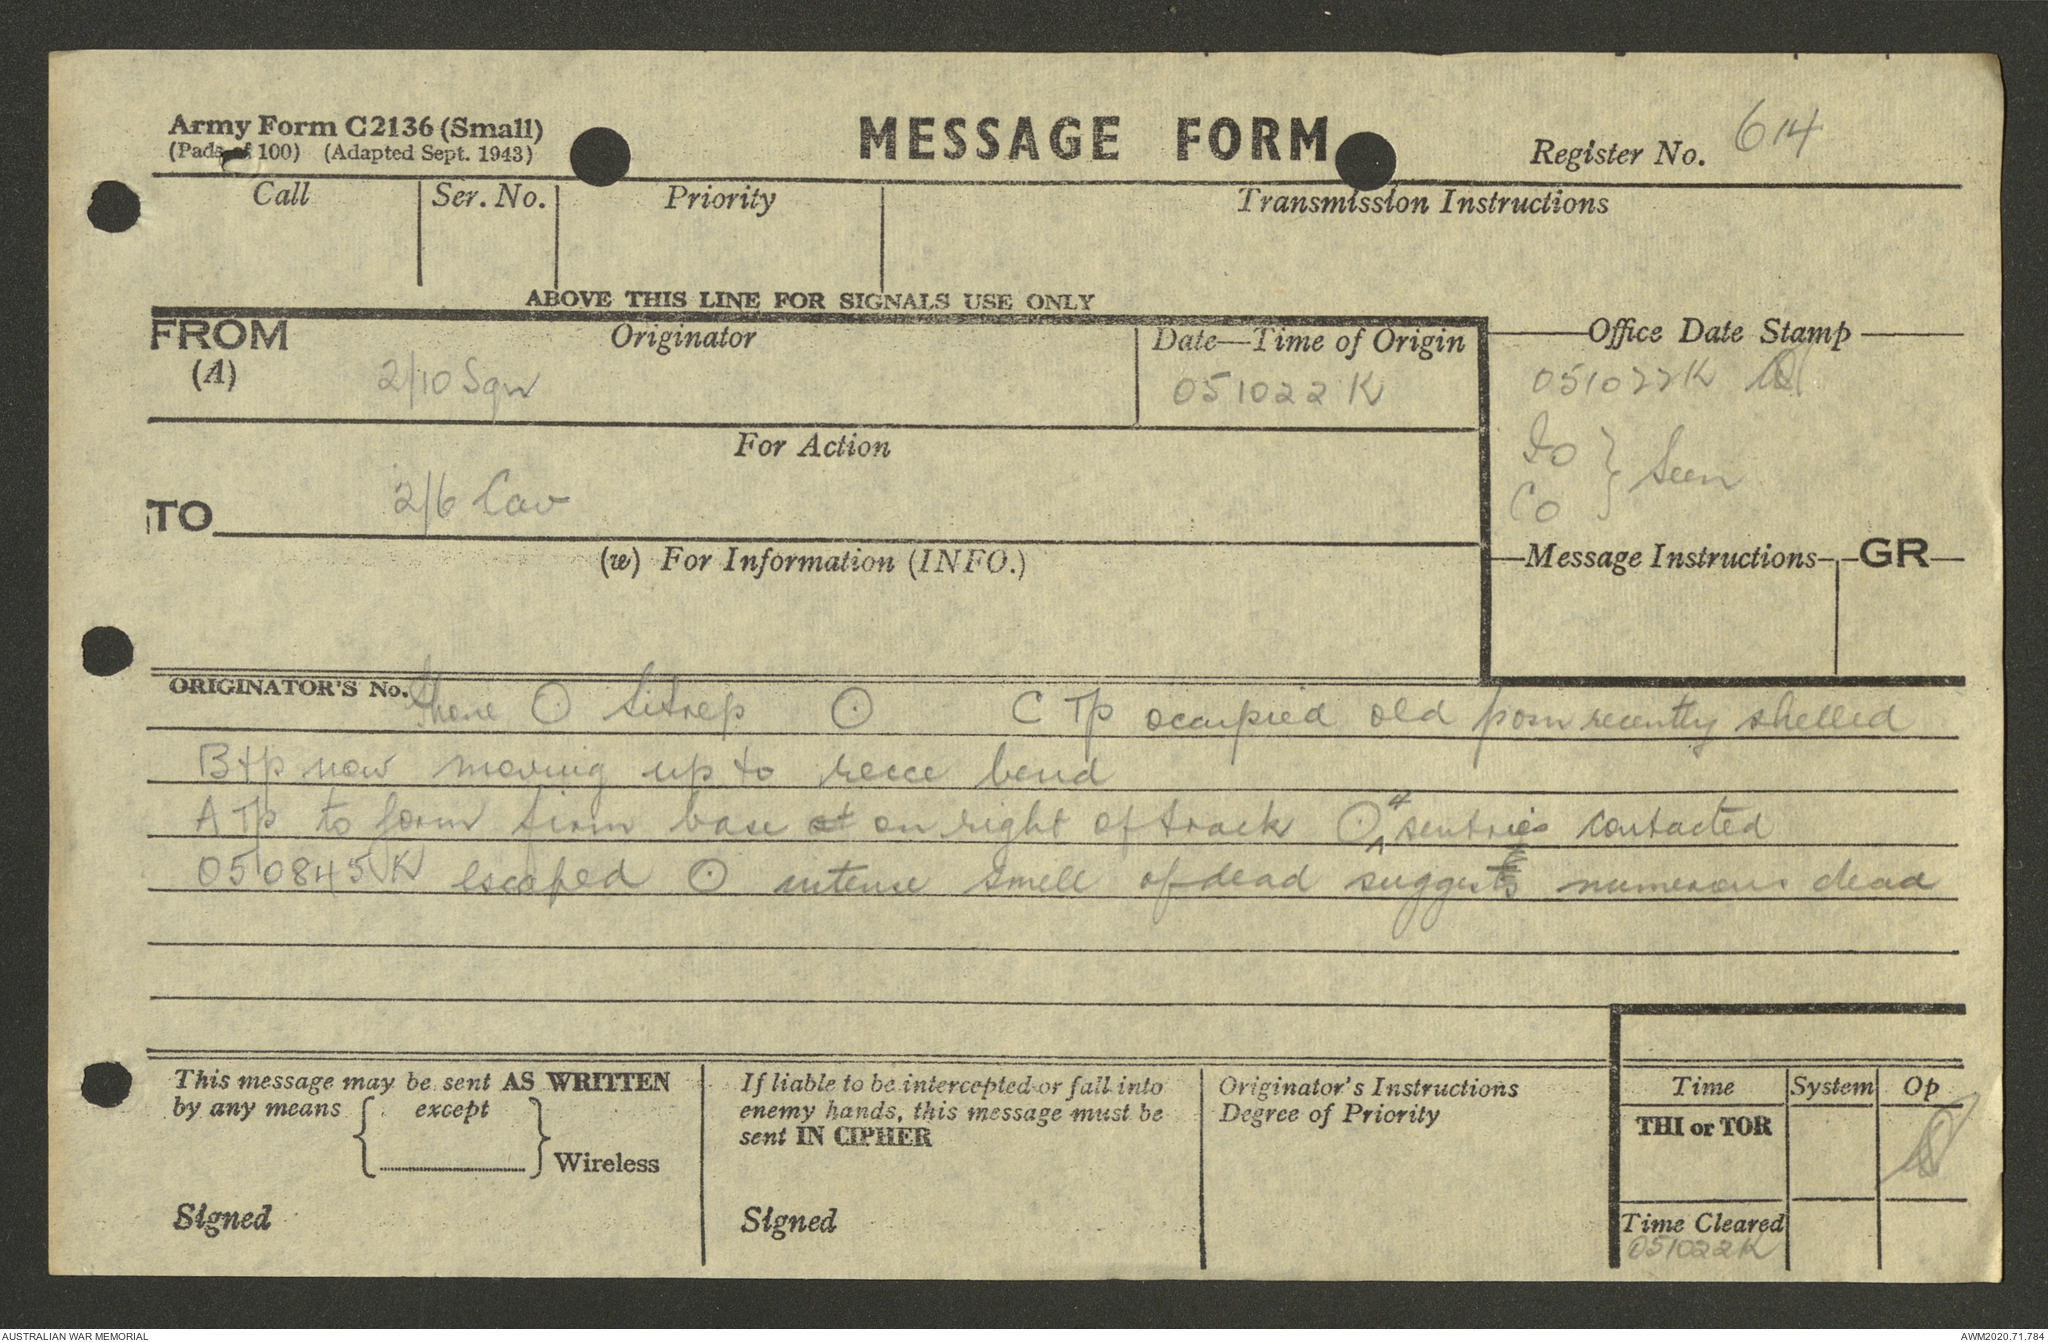 Army Form C2136 (Small)
(Pads of 100) (Adapted Sept. 1943)
MESSAGE FORM
Register No. 614
Call
Ser. No.
Priority
Transmission Instructions
ABOVE THIS LINE FOR SIGNALS USE ONLY
FROM
(A)
Originator
2/10 Sqn
Date—Time of Origin
051022K
Office Date Stamp
051022K
IO
CO } Seen
For Action
TO
2/6 Cav
(w) For Information (INFO.)
Message Instructions
GR
ORIGINATOR'S No.
Phone O Sitrep O C Tp occupied old posn recently shelled
B tp now moving up to recce bend
A Tp to form firm base at on right of track O 4 sentries contacted
050845K escaped O intense smell of dead suggests numerous dead
This message may be sent AS WRITTEN
by any means { except
} Wireless
Signed
If liable to be intercepted or fall into
enemy hands, this message must be
sent IN CIPHER
Signed
Originator's Instructions
Degree of Priority
Time
System
Op
THI or TOR
Time Cleared
051022K
AUSTRALIAN WAR MEMORIAL
AWM2020.71.784